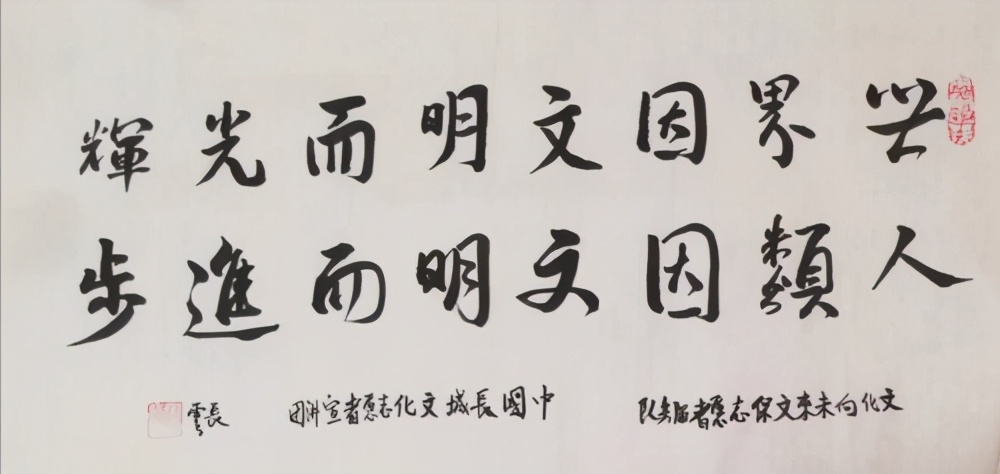 世界因文明而光輝
人類因文明而進步
文化向未来文保志愿者
中國長城文化志愿者宣讲团
長雲